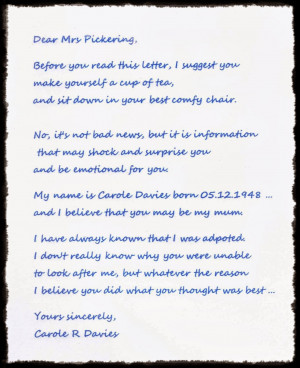 Dear Mrs Pickering,
Before you read this letter, I suggest you
make yourself a cup of tea,
and sit down in your best comfy chair.
No, it's not bad news, but it is information
that may shock and surprise you
and be emotional for you.
My name is Carole Davies born 05.12.1948 ...
and I believe that you may be my mum.
I have always known that I was adpoted.
I don't really know why you were unable
to look after me, but whatever the reason
I believe you did what you thought was best ...
Yours sincerely,
Carole R Davies